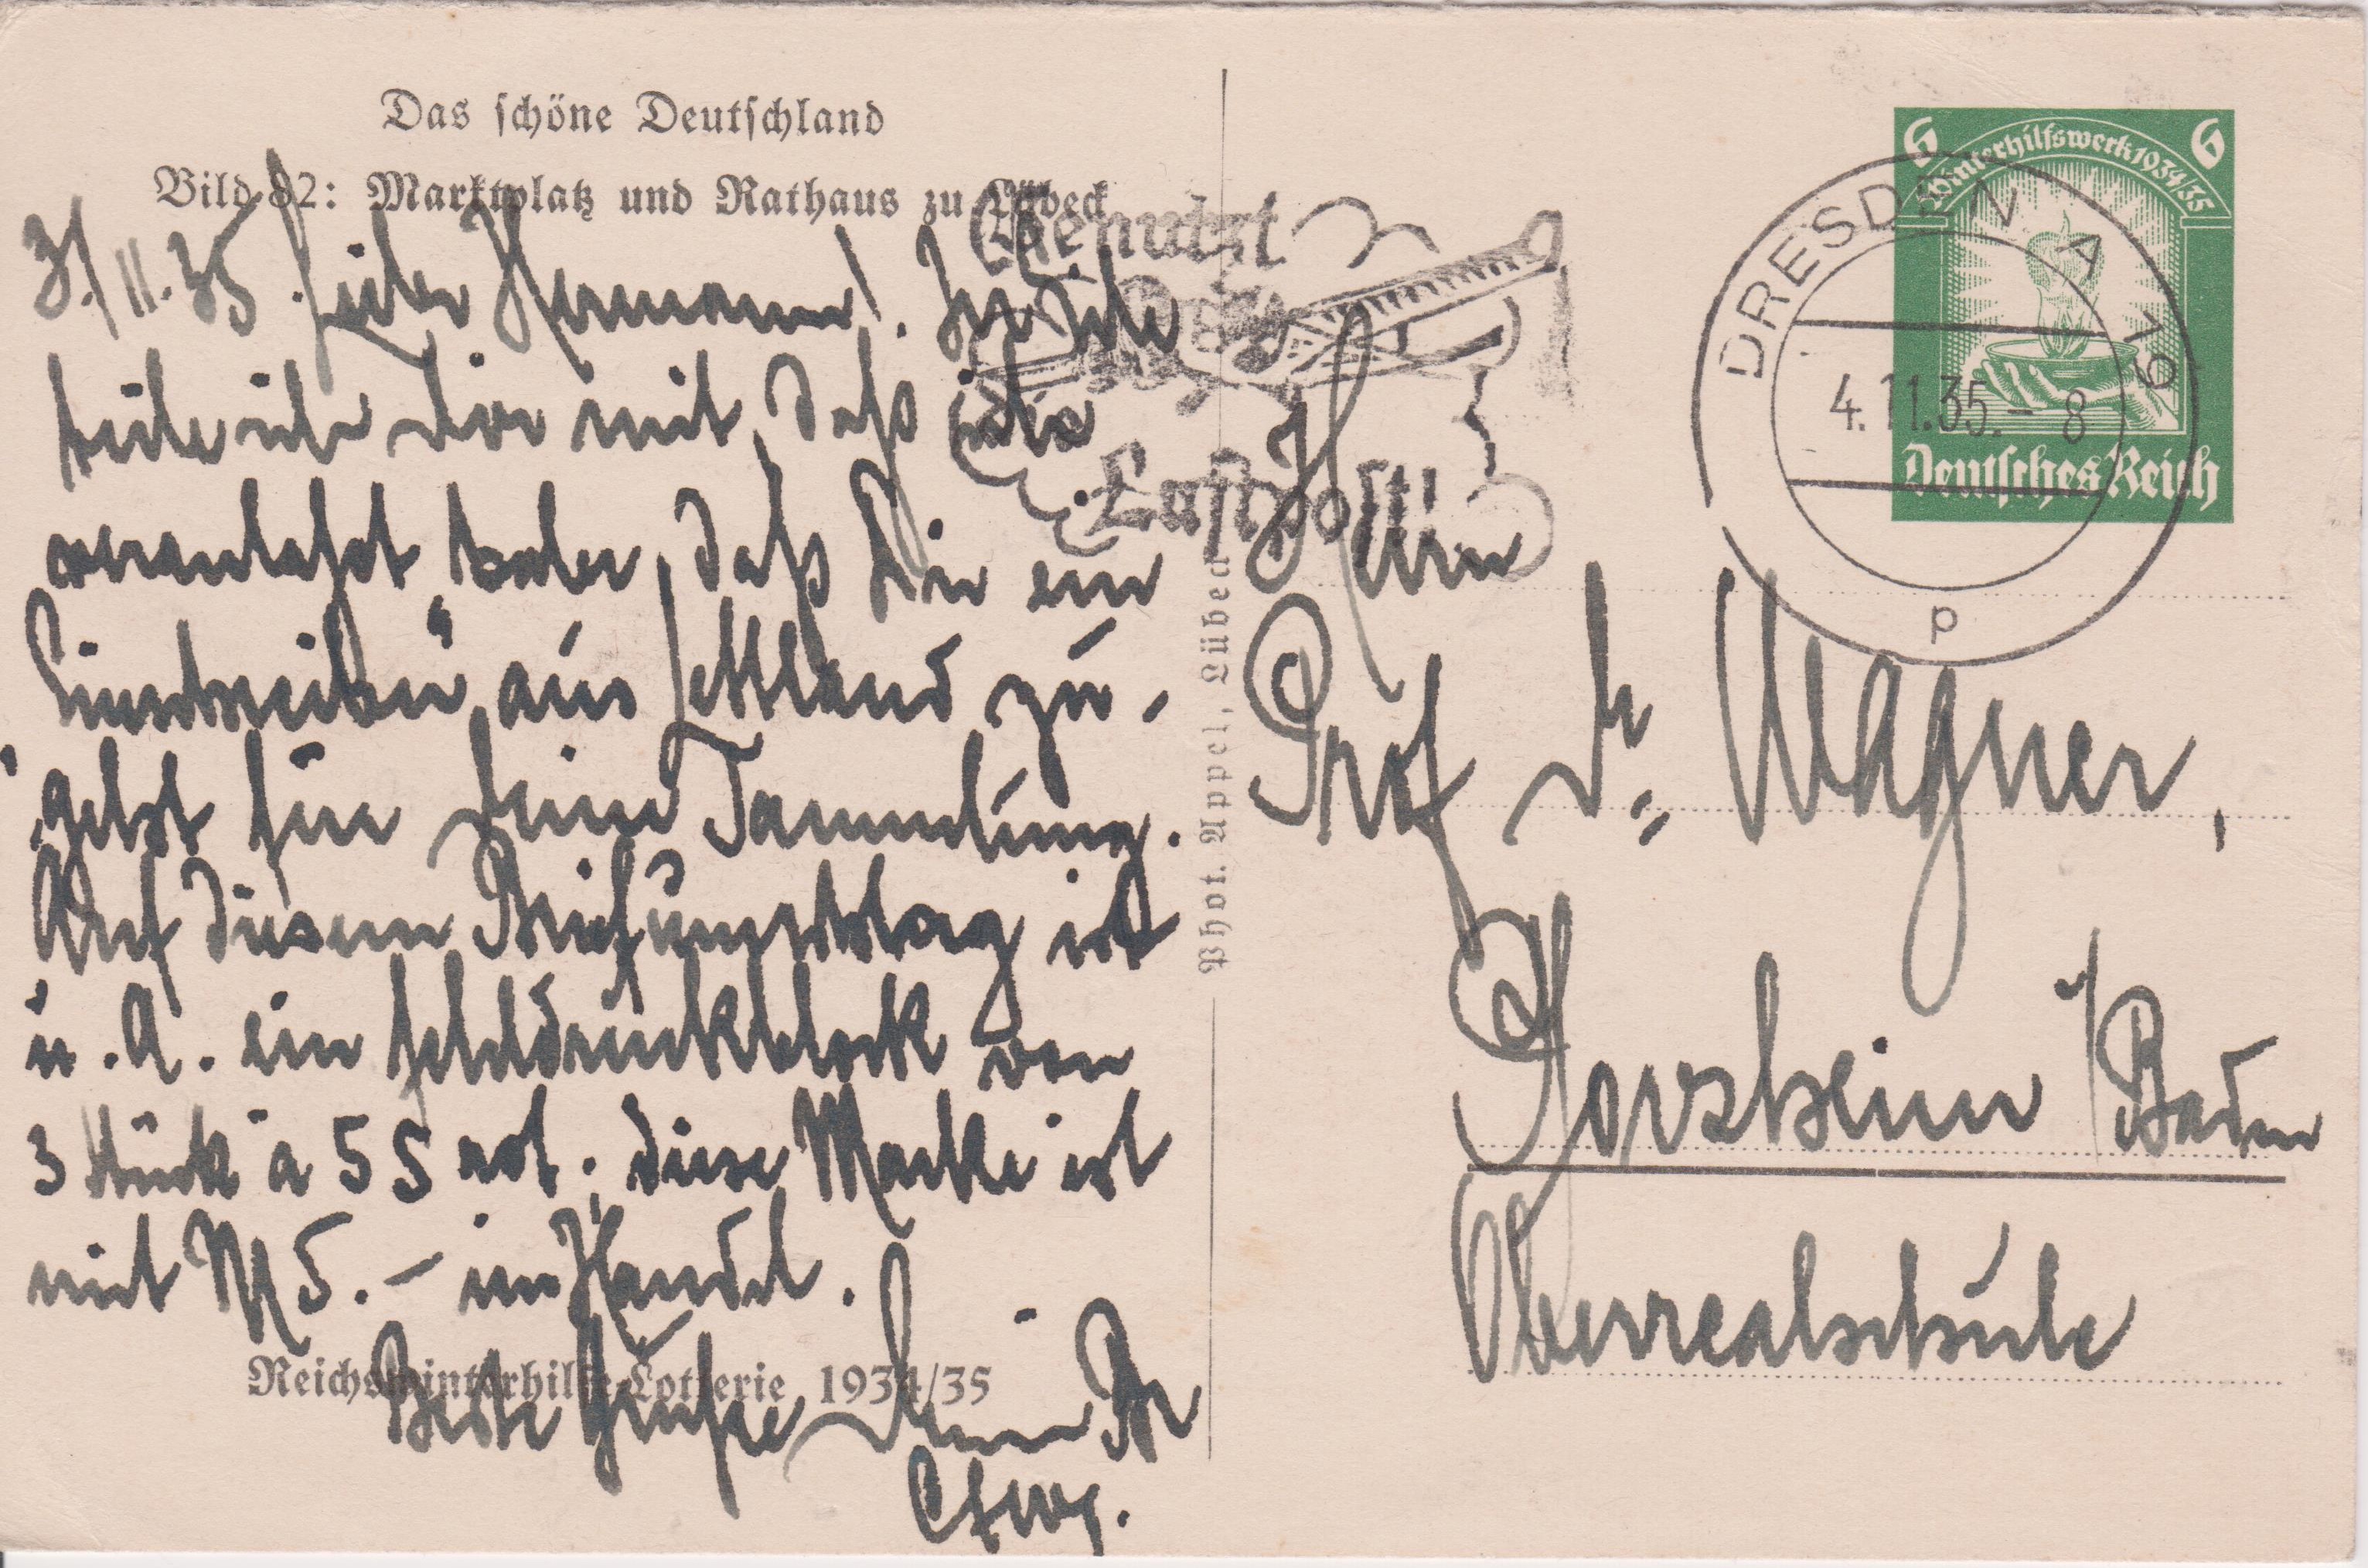 Das schöne Deutschland
Bild 82: Marktplatz und Rathaus zu Lübeck
3./11.35 Lieber Hermann!
teile ich Dir mit, daß ich
veranlaßt habe, daß Dir ein
"Einschreiben" aus Lettland zu-
geht für Deine Sammlung.
Auf diesem Briefumschlag ist
u. A. ein Fehldruckblock von
3 Stück a 5 S rot. Diese Marke ist
mit M 5.– im Handel.
Beste Grüße Dein
Reichswinterhilfe-Lotterie 1934/35
Phot. Appel, Lübeck
Benutzt
die
Luftpost!
6 Winterhilfswerk 1934/35 6
Deutsches Reich
DRESDEN A
4.11.35.- 8
p
Herrn
Prof Dr. Wagner,
Pforzheim / Baden
Oberrealschule